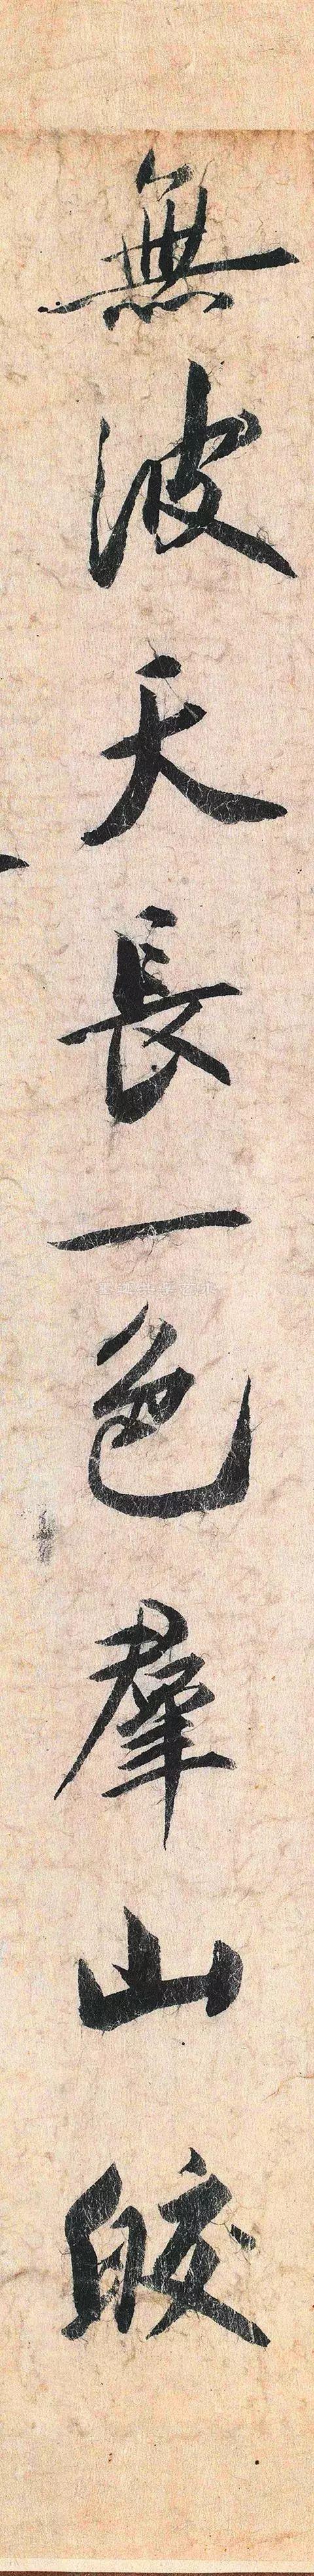 無波天長一色羣山皎